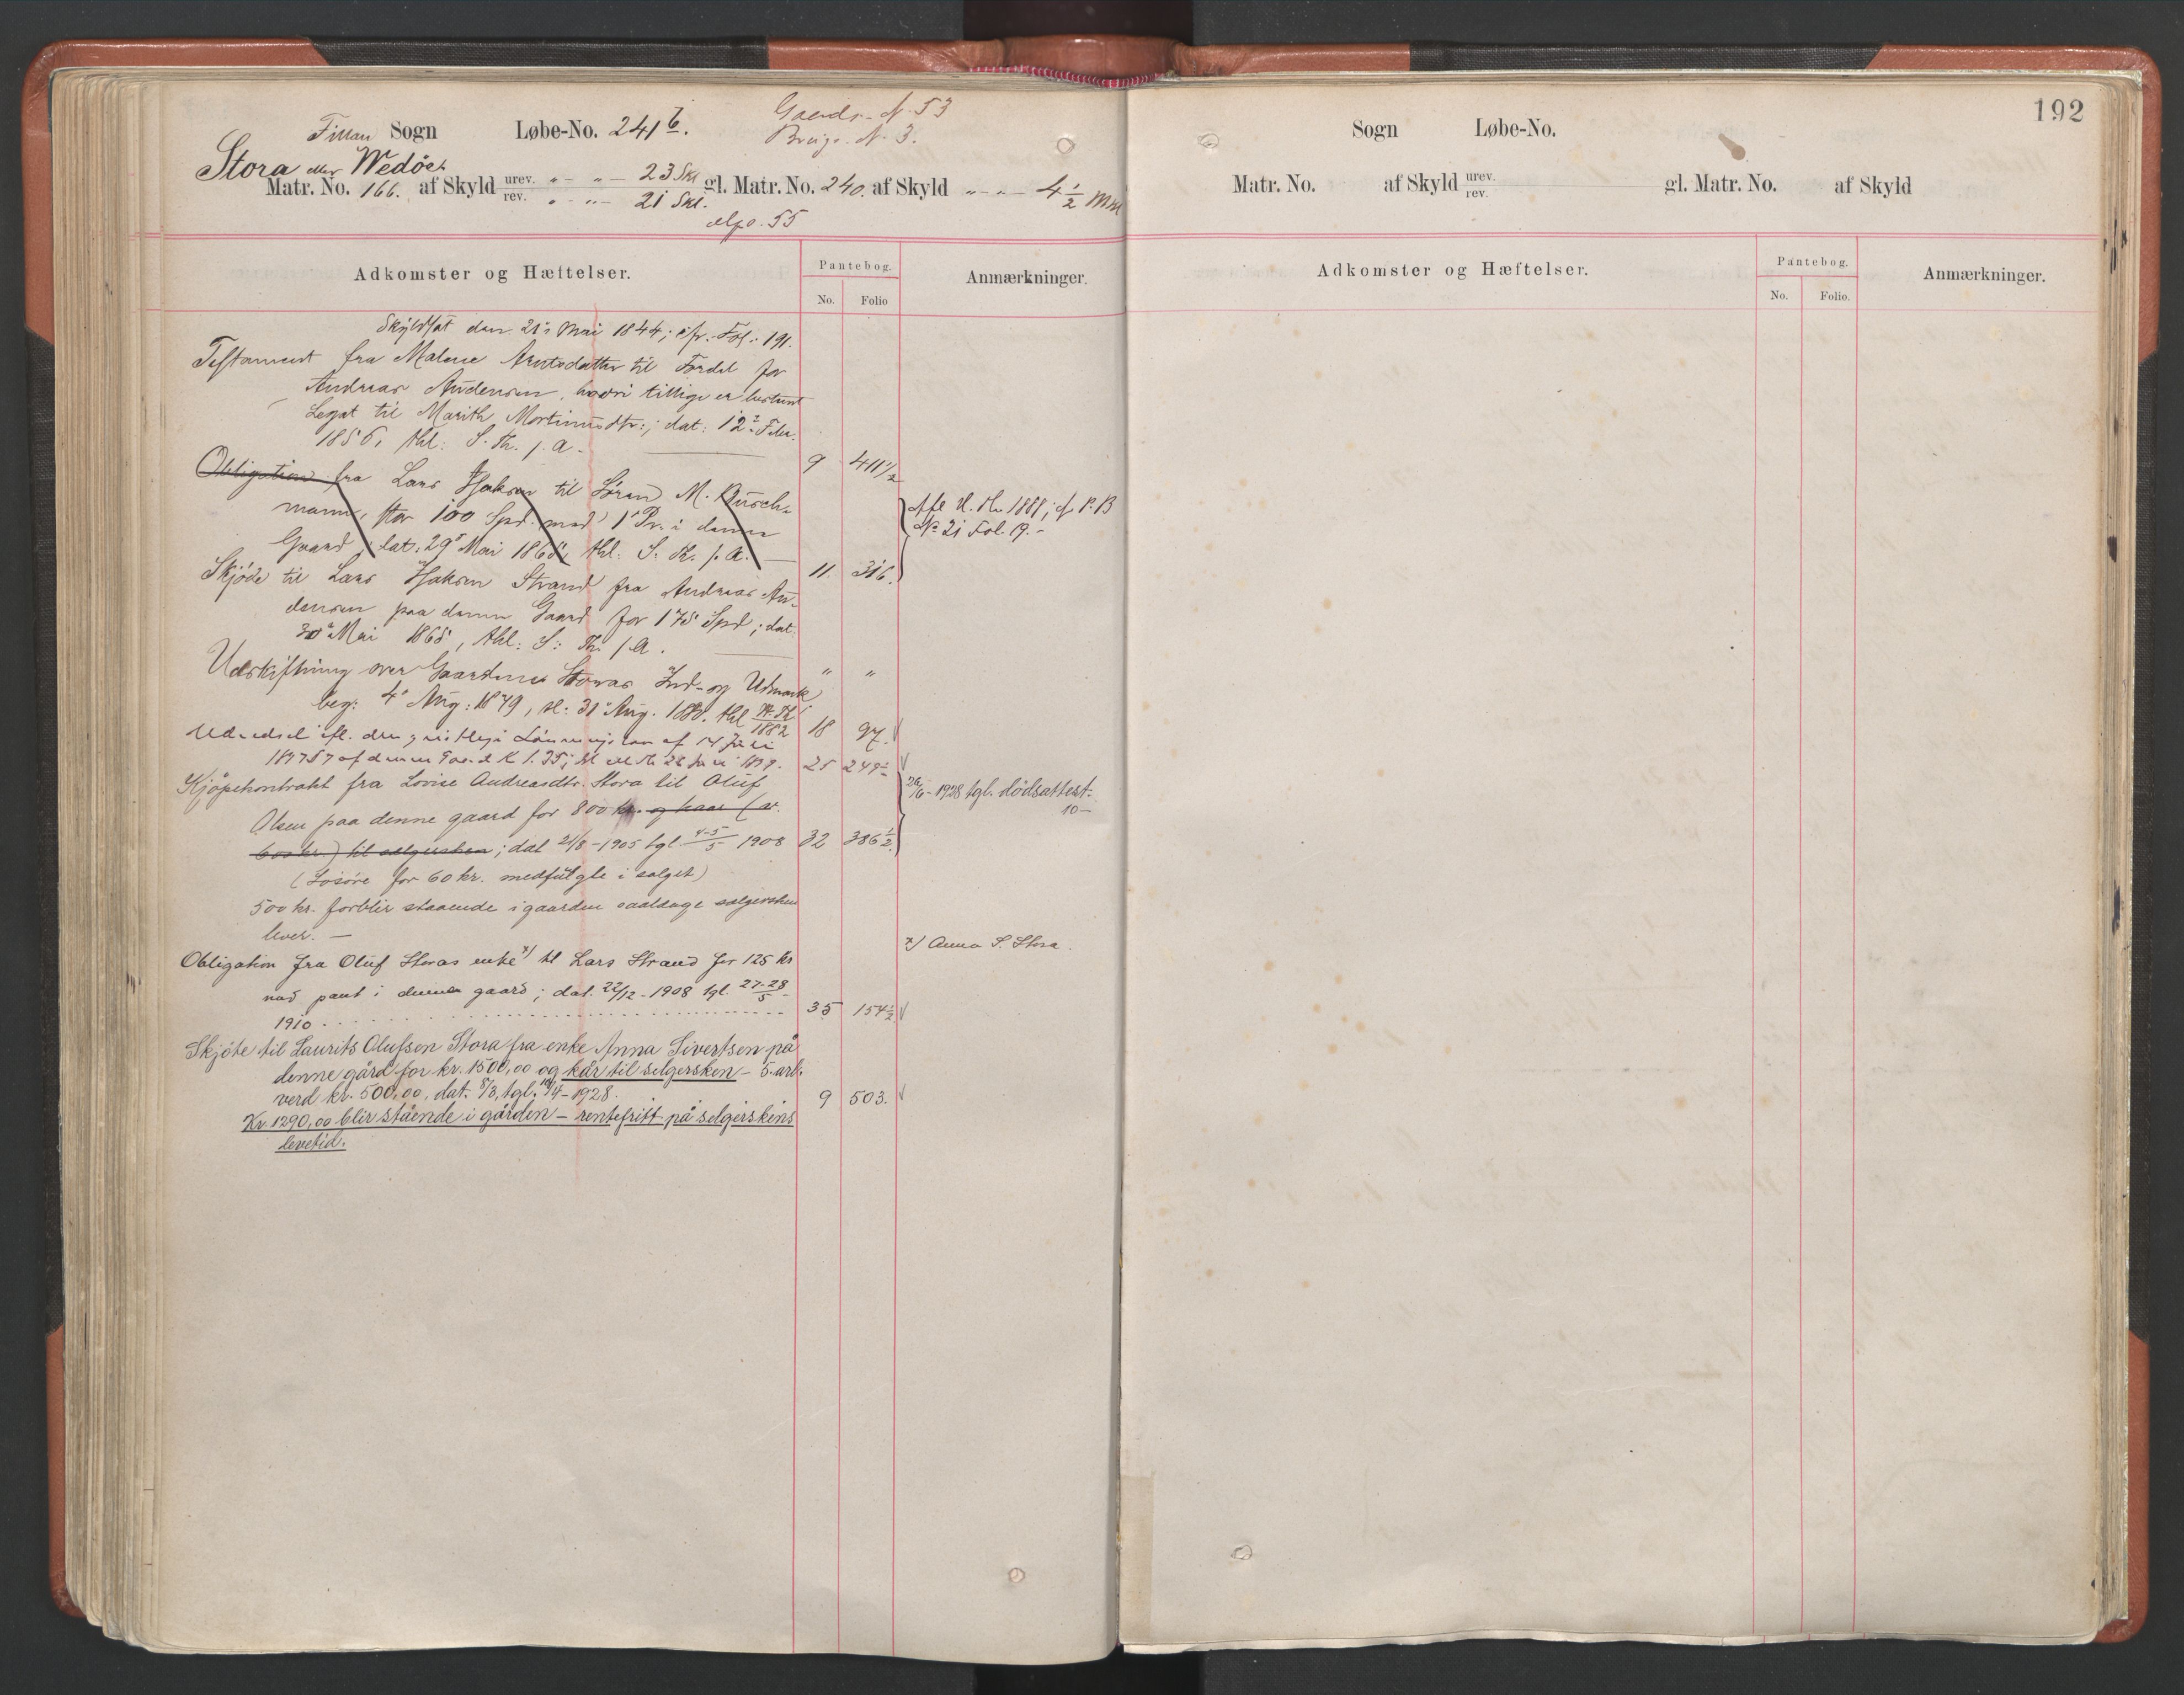 Gaards-N. 53
Fillan Sogn Løbe-No. 241 b. Brugs-N. 3.
Stora eller Wedöen
Matr. No. 166. af Skyld urev. " - " - 23 Skl gl. Matr. No. 240. af Skyld " - " - 4 1/2 Mrk
rev. " - " - 21 Skl.
55
Adkomster og Hæftelser.
Pantebog.
No. Folio
Anmærkninger.
Skyldsat den 21. Mai 1844; cfr. Fol. 191.
Testament fra Malene Arntsdatter til Fordel for
Andreas Andersen, hvori tillige er bestemt
Legat til Marith Mortinusdtr.; dat: 12 Febr.
1856, thl: S. Th. s. A. 9 411 1/2
Obligation fra Lars Isaksen til Søren M. Busch-
mann, stor 100 Spd. med 1 Pr. i denne
Gaard; dat: 29 Mai 1865, thl: S. Th. s. A. 11. 316.
Afl. H. Th. 1888; cfr P.B
No 21 Fol. 19. -
Skjöde til Lars Isaksen Strand fra Andreas An-
dersen paa denne Gaard for 175 Spd; dat.
30 Mai 1865, thl: S: Th. s. A. " "
Udskiftning over Gaardenes Storas Ind- og Udmark
beg: 4 Aug: 1879, sl: 31 Aug. 1880. thl 1882 18 97.
Udredsel ifl. den geistlige Lönningslov af 14 Juli
1897 § 7 af denne Gaard K 1.35; 1898. 25 249
Kjöpekontrakt fra Lovise Andreasdtr. Stora til Oluf
Olsen paa denne gaard for 800 kr. og kaar (v.
600 kr.) til sælgersken; dat 21/8-1905 tgl. 4-5/5 1908 32 386 1/2
26/6-1928 tgl. dödsattest.
10-
(Lösöre for 60 kr. medfulgte i salget)
500 kr. forblir staaende i gaarden saalænge sælgersken
lever. -
Obligation fra Oluf Storas enke x) til Lars Strand for 125 kr
x) Anna S. Stora.
med pant i denne gaard; dat. 22/12-1908 tgl. 27-28/5-
1910 35 154 1/2
Skjöte til Laurits Olufsen Stora fra enke Anna Sivertsen på
denne gård for kr. 1500,00 og kår til selgersken - 5. årl.
verd kr. 500,00, dat. 8/3, tgl. 10/4-1928. 9 503.
Kr. 1290,00 blir stående i gården - rentefritt på selgerskens
levetid.
192
Sogn Løbe-No.
Matr. No. af Skyld urev. gl. Matr. No. af Skyld
rev.
Adkomster og Hæftelser.
Pantebog.
No. Folio.
Anmærkninger.